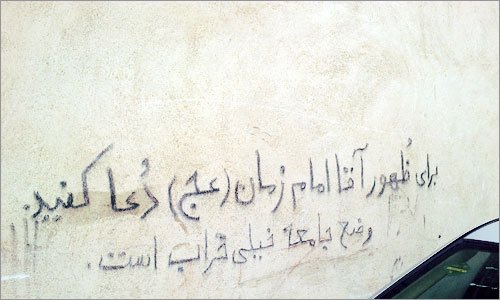 برای ظُهور آقا امام زمان (عج) دُعا کنید.
وضع جامعه خیلی خراب است.